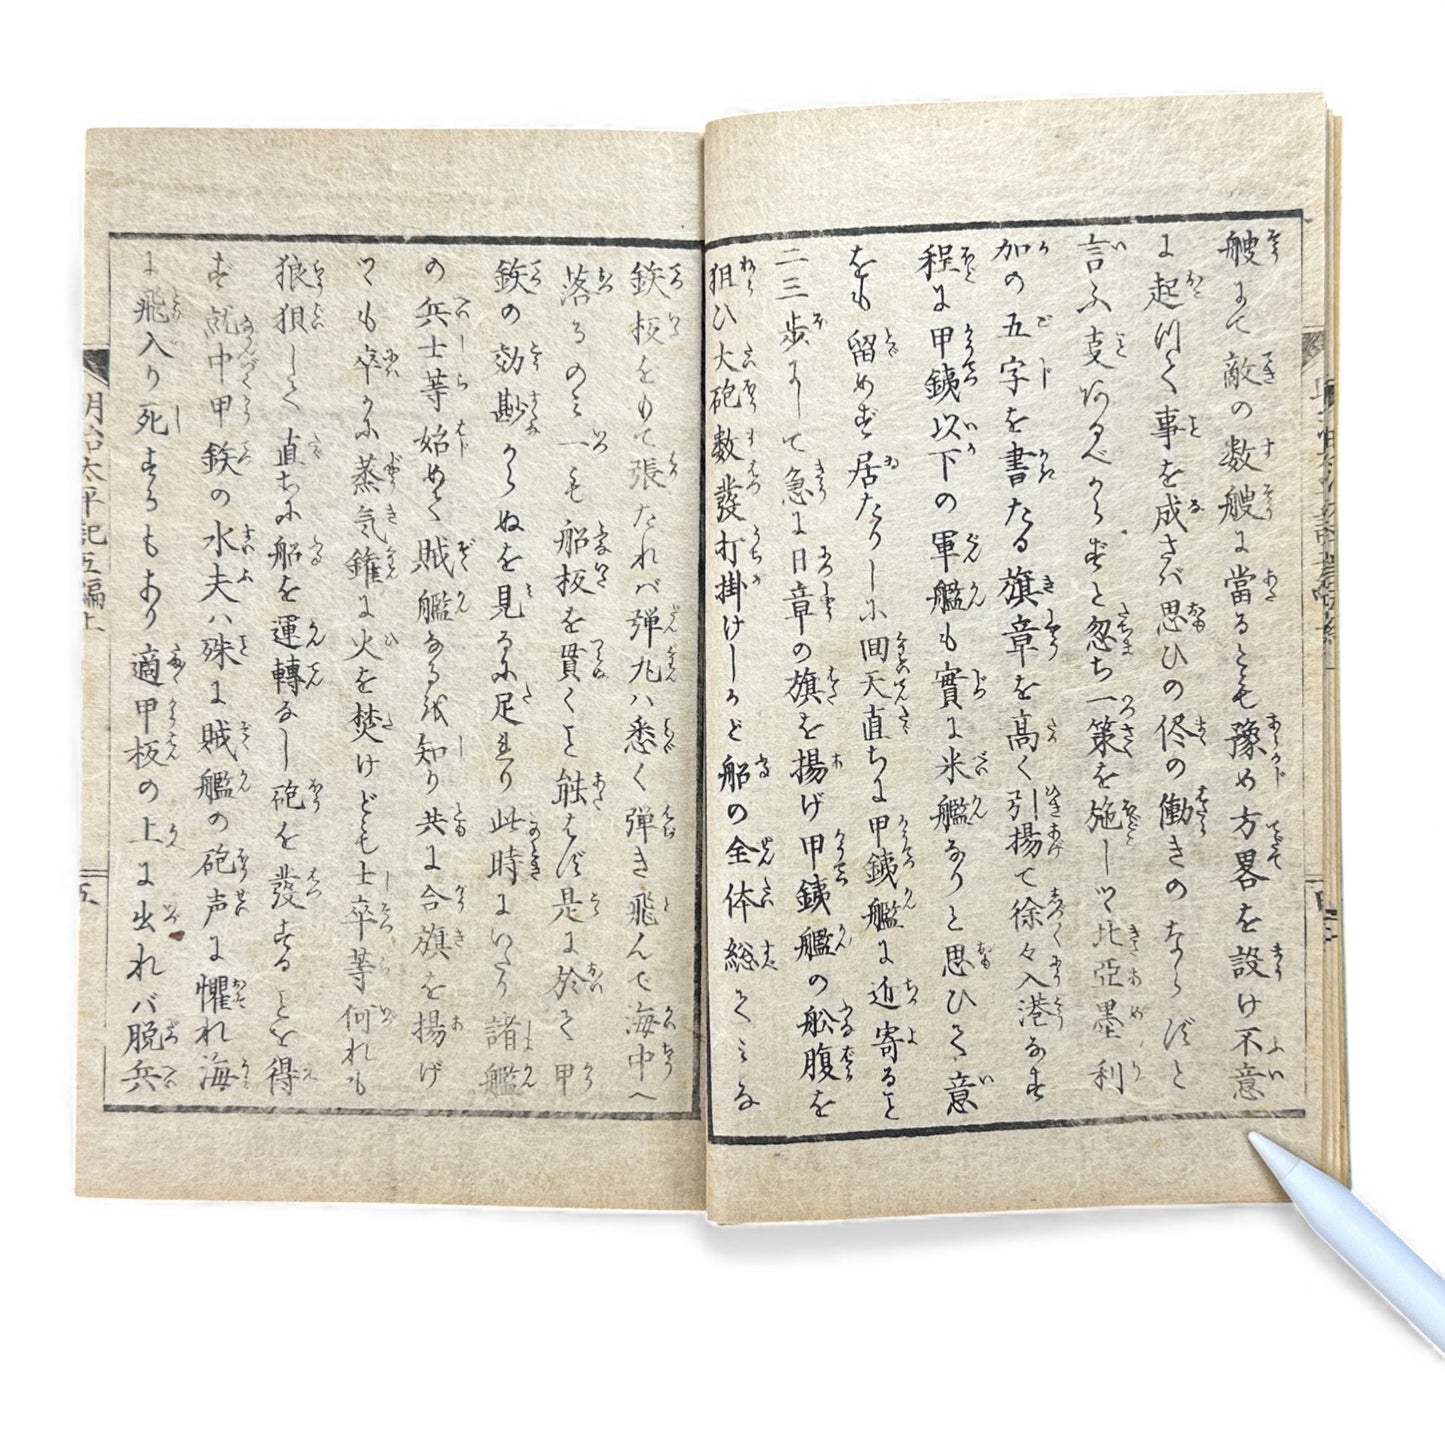 艘にて敵の数艘に當るとも豫め方畧を設け不意
に起りて事を成さバ思ひの侭の働きのならずと
言ふ支あるべからずと忽ち一策を施しつ北亞墨利
加の五字を書たる旗章を高く引揚て徐々入港なす
程に甲銕以下の軍艦も實に米艦なりと思ひて意
をも留めず居たりしに回天直ちに甲銕艦に近寄ること
二三歩にして急に日章の旗を揚げ甲銕艦の舩腹を
狙ひ大砲数發打掛けしかど船の全体総てみな
鉄板をもて張たれバ弾丸ハ悉く弾き飛んで海中へ
落るのみ一も船板を貫くこと能はず是に於て甲
鉄の効尠からぬを見るに足れり此時にいたり諸艦
の兵士等始めて賊艦なるを知り共に合旗を揚げ
つも卒かに蒸気鑵に火を焚けども士卒等何れも
狼狽して直ちに船を運轉なし砲を發することを得
ず就中甲鉄の水夫ハ殊に賊艦の砲声に懼れ海
に飛入り死するもあり適甲板の上に出れバ脱兵
明治太平記五編上
五